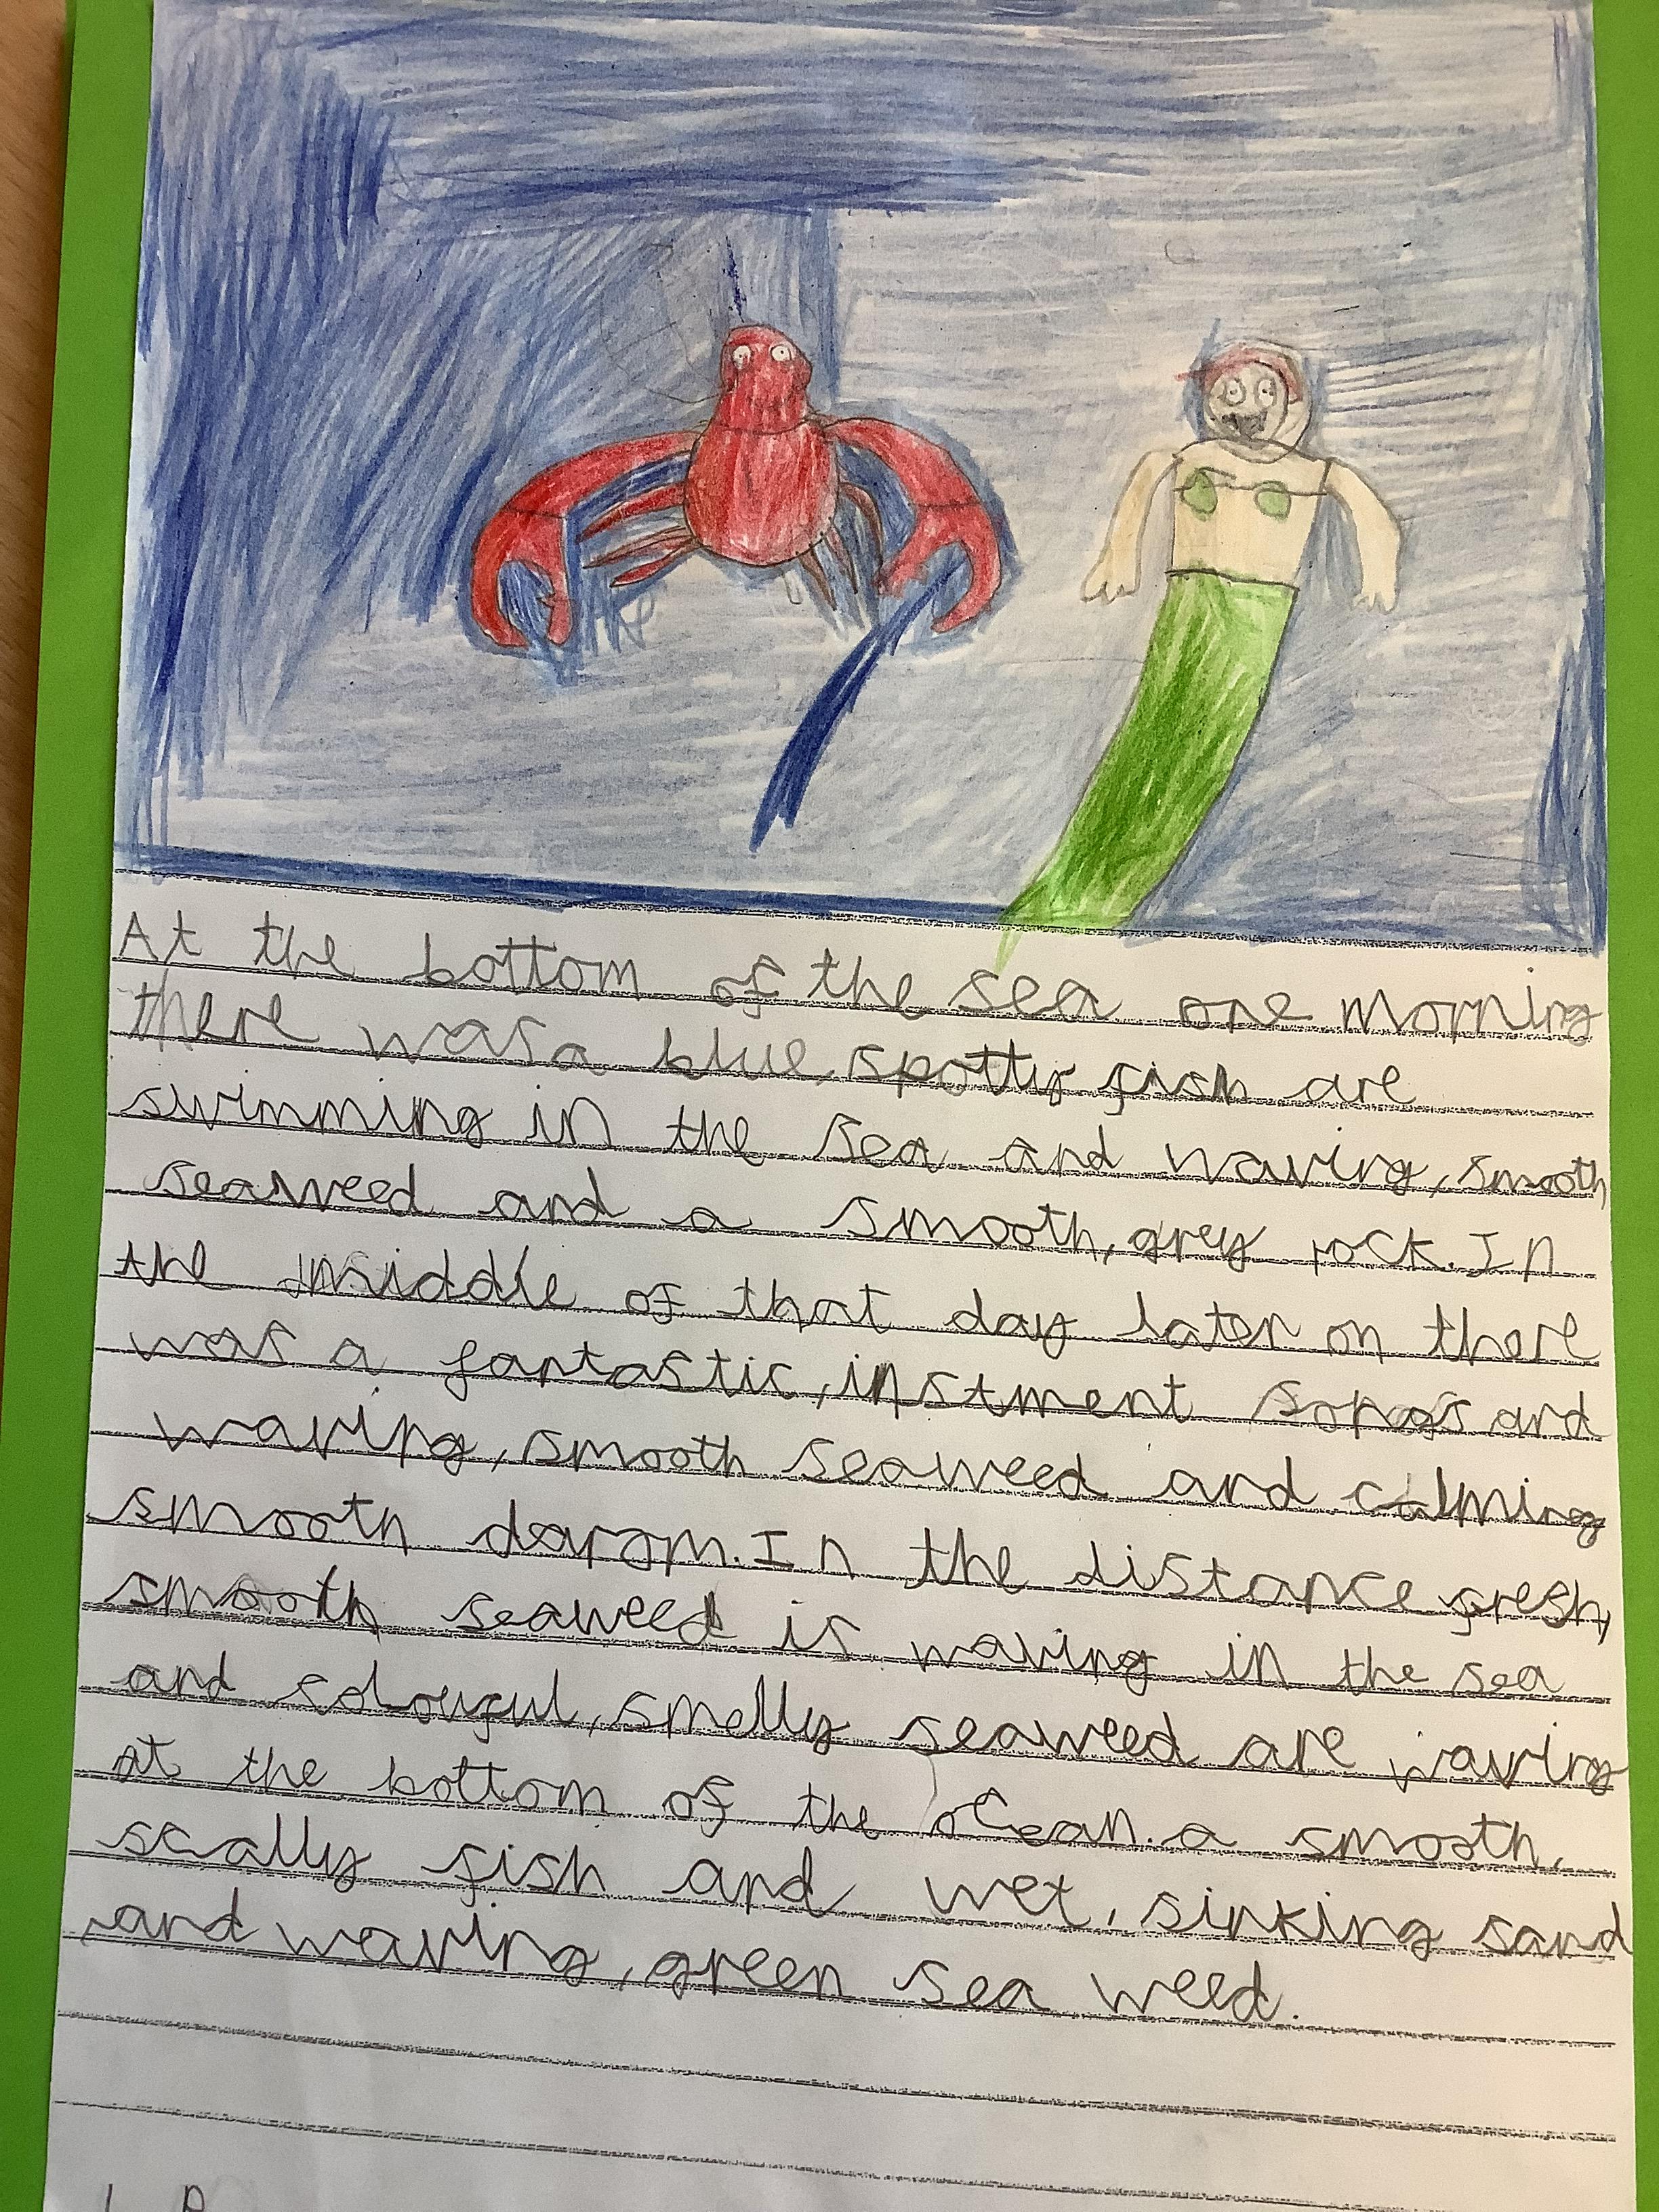 At the bottom of the sea one morning
there was a blue, spotty fish are
swimming in the sea and waving, smooth
seaweed and a smooth, grey rock. In
the middle of that day later on there
was a fantastic, instment songs and
waving, smooth seaweed and calming
smooth darom. In the distance fresh,
smooth seaweed is waving in the sea
and colourful, smelly seaweed are waving
at the bottom of the ocean. a smooth,
scally fish and wet, sinking sand
and waving, green sea weed.